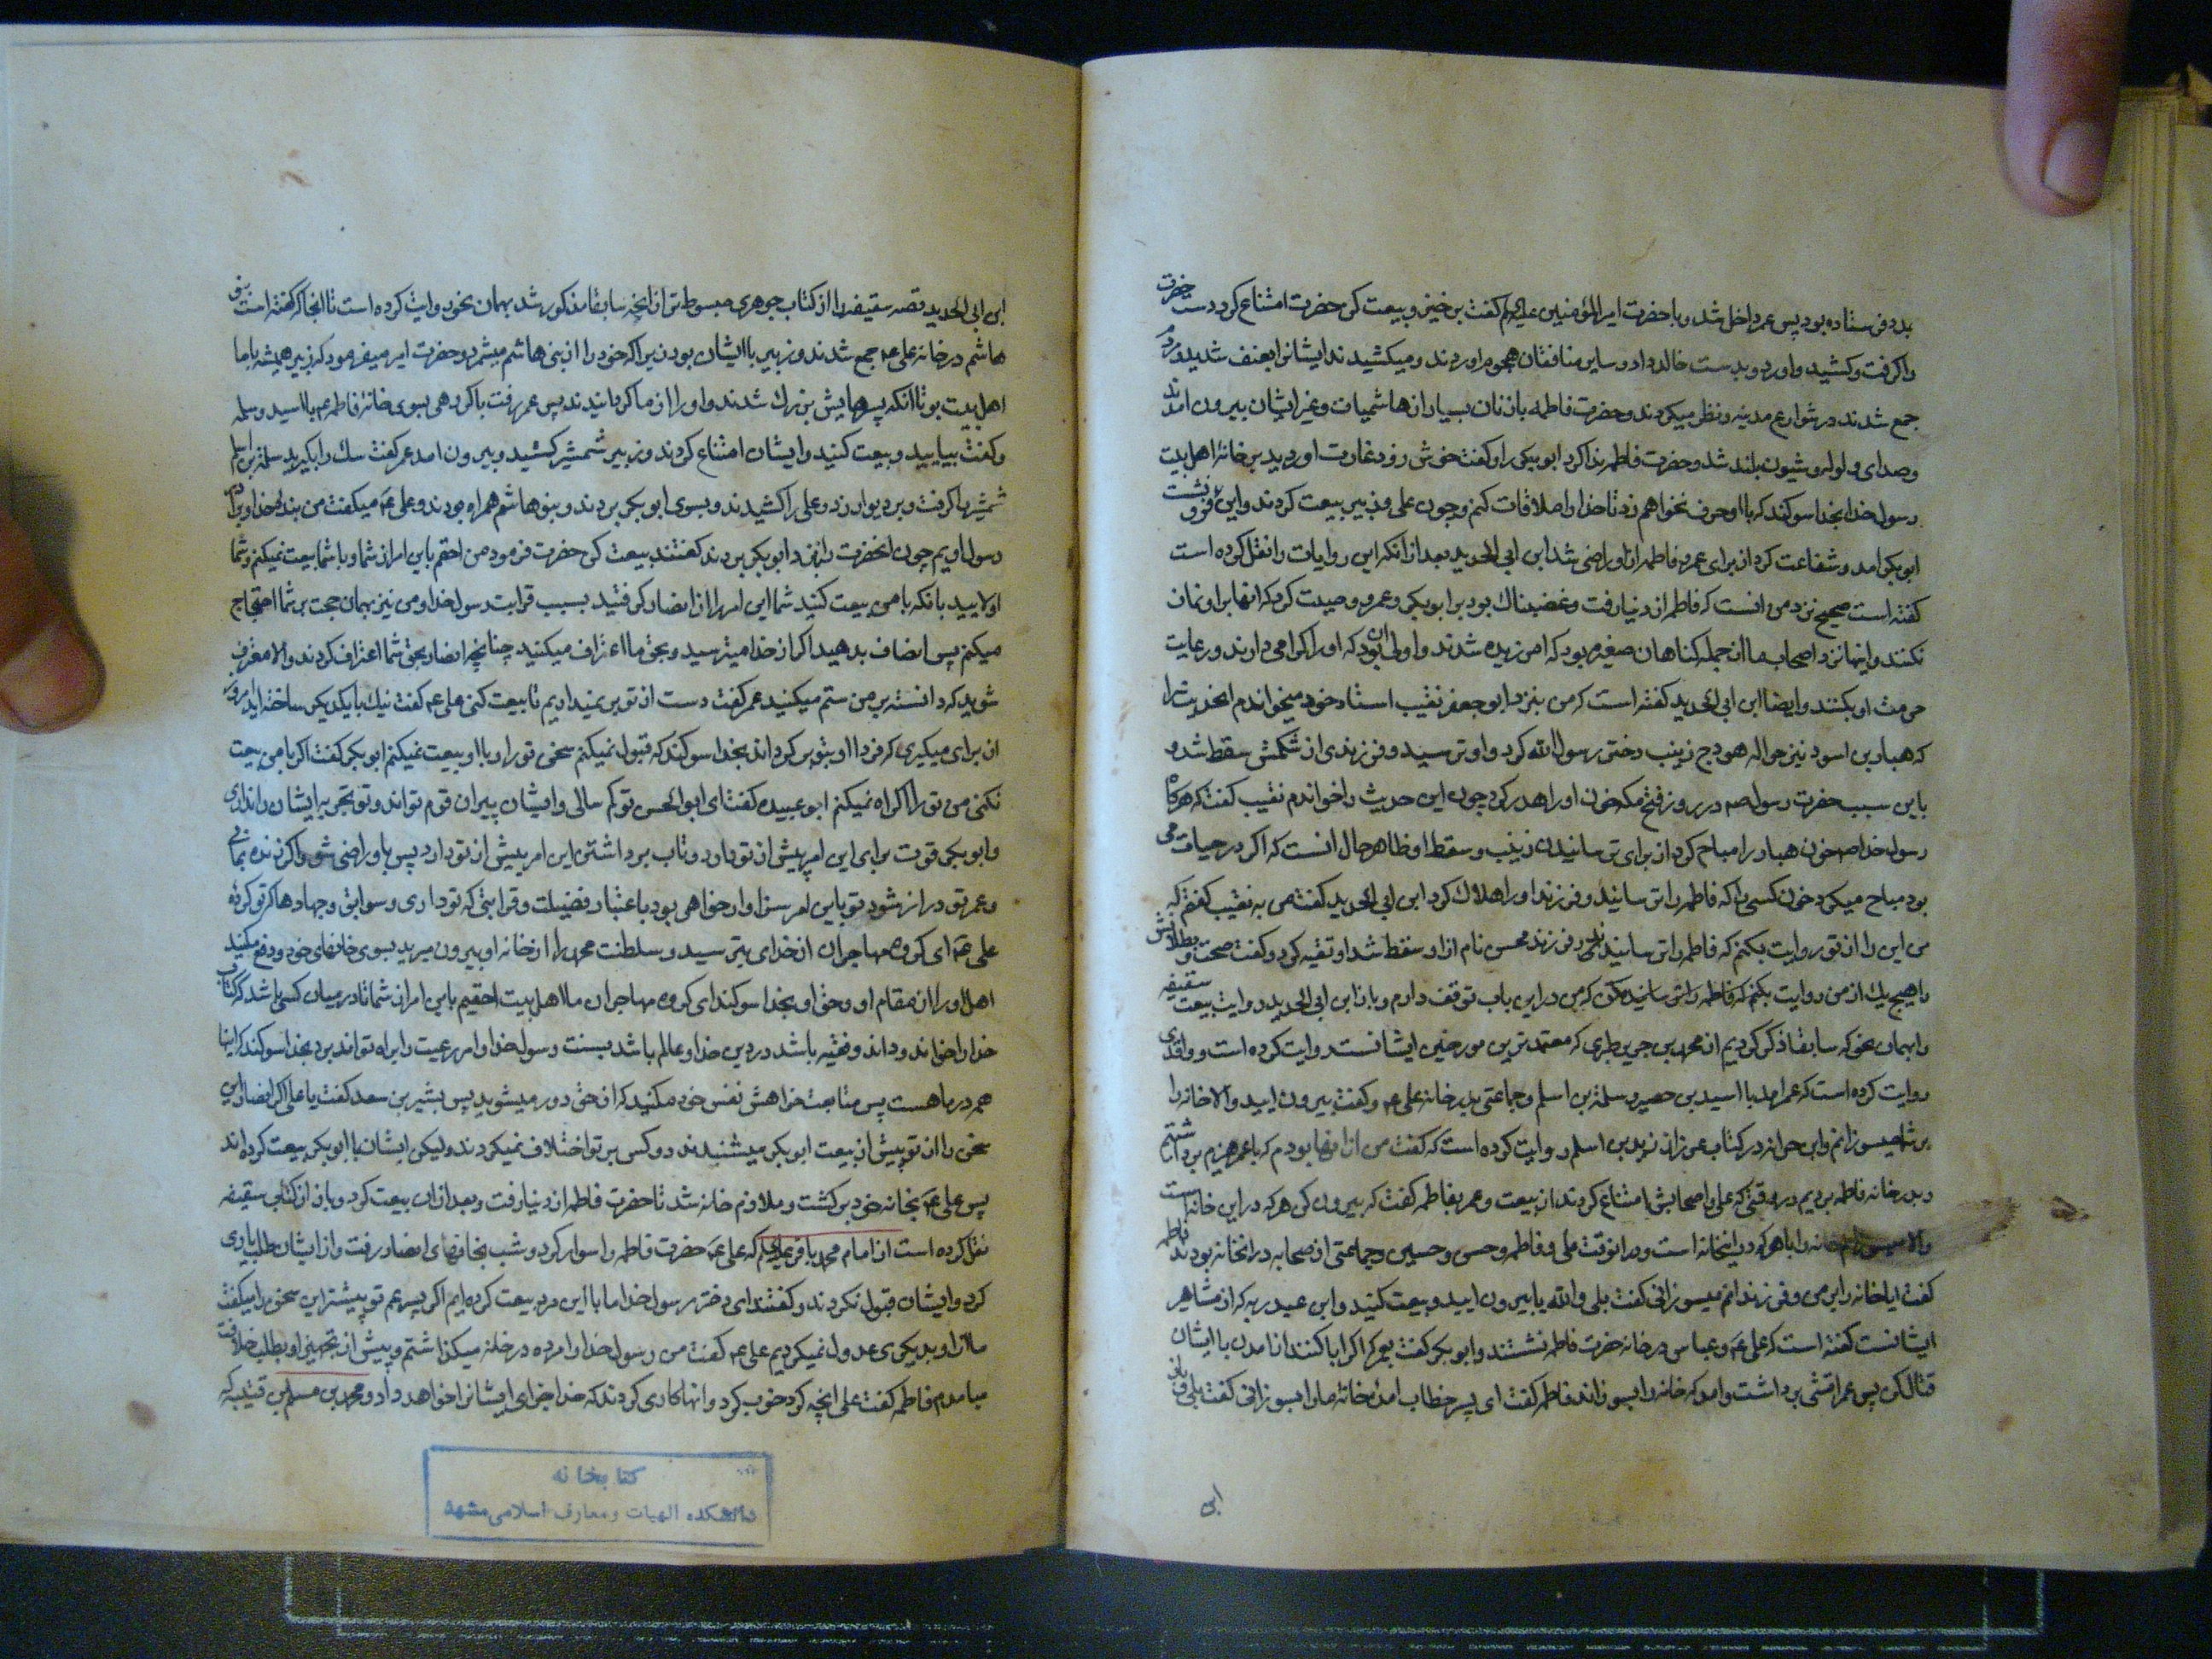 بدد فرستاده بود پس عمر داخل شد و با حضرت امیر المؤمنین علیه‌السلم گفت برخیز و بیعت کن حضرت امتناع کرد دست حضرت
را گرفت و کشید و اورد و بدست خالد داد و سایر منافقان هجوم اوردند و میکشیدند ایشانرا بعنف شدید و مردم
جمع شدند در شوارع مدینه و نظر میکردند و حضرت فاطمه با زنان بسیار از هاشمیات و غیر ایشان بیرون امدند
و صدای ولوله و شیون بلند شد و حضرت فاطمه ندا کرد ابو بکر را و گفت خوش زود غارت اوردید بر خانهٔ اهل بیت
رسول خدا بخدا سوکند که با او حرف نخواهم زد تا خدا را ملاقات کنم و چون علی و زبیر بیعت کردند و این فرو نشست
ابو بکر امد و شفاعت کرد از برای عمر و فاطمه از او راضی شد ابن ابی الحدید بعد از انکه این روایات را نقل کرده است
گفته است صحیح نزد من انست که فاطمه از دنیا رفت و غضبناک بود بر ابو بکر و عمر و وصیت کرد که انها بر او نماز
نکنند و اینها نزد اصحاب ما از جمله کناهان صغیره بود که امرزیده شدند و اولی ان بود که او را کرامی دارند و رعایت
حرمت او بکنند و ایضا ابن ابی الحدید گفته است که من بنزد ابو جعفر نقیب استاد خود میخواندم انحدیث را
که هبار بن اسود نیزه حواله هودج زینب دختر رسول الله کرد و او ترسید و فرزندی از شکمش سقط شد و
باین سبب حضرت رسول صم در روز فتح مکه خون او را هدر کرد چون این حدیث را خواندم نقیب گفت که هرکاه
رسول خدا صم خون هبار را مباح کرد از برای ترسانیدن زینب و سقط او ظاهر حال انست که اگر در حیات می
بود مباح میکرد خون کسی را که فاطمه را ترسانید و فرزند او را هلاک کرد ابن ابی الحدید گفت من به نقیب گفتم که
من این را از تو روایت بکنم که فاطمه را ترسانیدند و فرزند محسن نام از او سقط شد او تقیه کرد و گفت صحت و بطلانش
را هیچ یک از من روایت مکن که من در این باب توقف دارم و باز ابن ابی الحدید روایت بیعت سقیفه
را بهمان نحو که سابقا ذکر کردیم از محمد بن جریر طبری که معتمدترین مورخین ایشانست روایت کرده است و واقدی
روایت کرده است که عمر امد با اسید بن حصیر و سلمة بن اسلم و جماعتی بدر خانهٔ علی عم و گفت بیرون ایید و الا خانه را
بر شما میسوزانم و ابن خزانه در کتاب غرر از زید بن اسلم روایت کرده است که گفت من از انها بودم که با عمر هیزم برداشتیم
و بدر خانه فاطمه بردیم در وقتی که علی و اصحابش امتناع کردند از بیعت و عمر بفاطمه گفت که بیرون کن هر که در این خانه است
والا میسوزانم خانه را با هر که در اینخانه است و در انوقت علی و فاطمه و حسن و حسین و جماعتی از صحابه در انخانه بودند فاطمه
گفت ایا خانه را بر من و فرزندانم میسوزانی گفت بلی والله یا بیرون ایید و بیعت کنید و ابن عبد ربه که از مشاهیر
ایشانست گفته است که علی عم و عباس در خانه حضرت فاطمه نشستند و ابو بکر گفت بعمر که اگر ابا کنند از امدن با ایشان
قتال کن پس عمر اتشی برداشت و امد که خانه را بسوزاند فاطمه گفت ای پسر خطاب امدهٔ خانهٔ ما را بسوزانی گفت بلی
ابن
ابن ابی الحدید قصه سقیفه را از کتاب جوهری مبسوط تر از انچه سابقا مذکور شد بهمان نحو روایت کرده است تا انجا که گفته است بنی
هاشم در خانهٔ علی عم جمع شدند و زبیر با ایشان بود زیرا که خود را از بنی هاشم میشمرد و حضرت امیر میفرمود که زبیر همیشه با ما
اهل بیت بود تا انکه پسرهایش بزرک شدند و او را از ما کردانیدند پس عمر رفت با کروهی بسوی خانهٔ فاطمه عم با اسید و سلمه
و گفت بیایید و بیعت کنید و ایشان امتناع کردند و زبیر شمشیر کشید و بیرون امد عمر گفت سک را بکیرید سلمة بن اسلم
شمشیر را گرفت و بر دیوار زد و علی را کشیدند و بسوی ابو بکر بردند و بنو هاشم همراه بودند و علی عم میگفت من بندهٔ خدا و برادر
رسول اویم چون انحضرت را بنزد ابو بکر بردند گفتند بیعت کن حضرت فرمود من احقم باین امر از شما و با شما بیعت نمیکنم و شما
اولایید بانکه با من بیعت کنید شما این امر را از انصار گرفتید بسبب قرابت رسول خدا و من نیز بهمان حجت بر شما احتجاج
میکنم پس انصاف بدهید اگر از خدا میترسید و بحق ما اعتراف میکنید چنانچه انصار بحق شما اعتراف کردند والا معترف
شوید که دانسته بر من ستم میکنید عمر گفت دست از تو بر نمیداریم تا بیعت کنی علی عم گفت نیک با یکدیکر ساخته اید امروز
از برای او میکیری که فردا او بتو بر کرداند بخدا سوکند که قبول نمیکنم سخن تو را و با او بیعت نمیکنم ابو بکر گفت اگر با من بیعت
نکنی من تو را اکراه نمیکنم ابو عبیده گفت ای ابو الحسن تو کم سالی و ایشان پیران قوم تواند و تو تجربه ایشان را نداری
و ابو بکر قوت برای این امر بیش از تو دارد و تاب برداشتن این امر بیش از تو دارد پس باو راضی شو و اکر زنده بمانی
و عمر تو دراز شود تو باین امر سزاوار خواهی بود باعتبار فضیلت و قرابتی که تو داری و سوابق و جهادها که تو کردهٔ
علی عم گفت ای گروه مهاجران از خدای بترسید و سلطنت محمد را از خانه او بیرون میرید بسوی خانهای خود و دفع مکنید
اهل او را از مقام او و حق او بخدا سوکند ای گروه مهاجران ما اهل بیت احقیم باین امر از شما تا در میان ما کسی باشد که کتاب
خدا را خواند و داند و فقیه باشد در دین خدا و عالم باشد بسنت رسول خدا و امر رعیت را براه تواند برد بخدا سوکند که اینها
همه در ما هست پس متابعت خواهش نفس خود مکنید که از حق دور میشوید پس بشیر بن سعد گفت یا علی اگر انصار این
سخن را از تو پیش از بیعت ابو بکر میشنیدند دو کس بر تو اختلاف نمیکردند ولیکن ایشان با ابو بکر بیعت کرده اند
پس علی عم بخانه خود بر کشت و ملازم خانه شد تا حضرت فاطمه از دنیا رفت و بعد از ان بیعت کرد و باز از کتاب سقیفه
نقل کرده است از امام محمد باقر علیه‌السلم که علی عم حضرت فاطمه را سوار کرد و شب بخانهای انصار رفت و از ایشان طلب یاوری
کرد و ایشان قبول نکردند و گفتند ای دختر رسول خدا ما با این مرد بیعت کرده ایم اگر پسر عم تو پیشتر این سخن را میگفت
ما از او بدیکری عدول نمیکردیم علی عم گفت من رسول خدا را مرده در خانه میکذاشتم و پیش از تجهیز او بطلب خلافت
میامدم فاطمه گفت علی انچه کرد خوب کرد و انها کاری کردند که خدا جزای ایشانرا خواهد داد و محمد بن مسلم بن قتیبه که
کتابخانه
دانشکده الهیات و معارف اسلامی مشهد